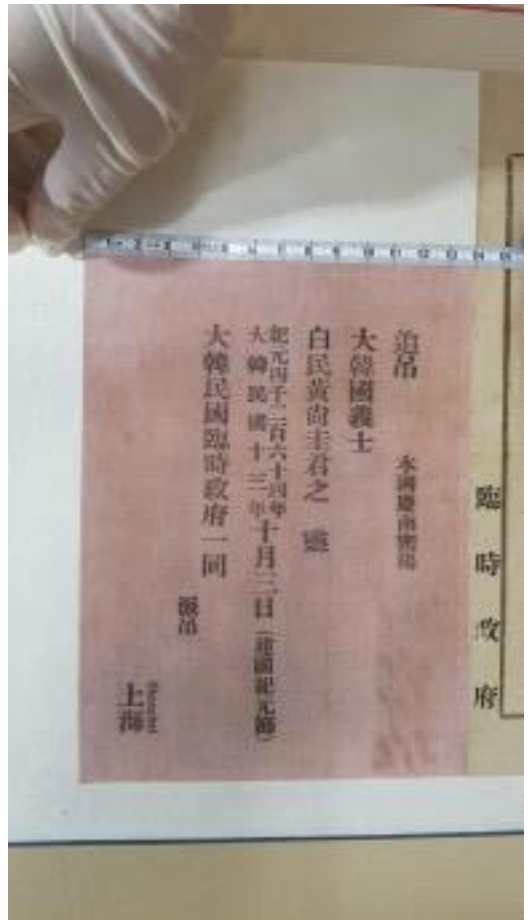 臨時政府
追吊 本國慶南密陽
大韓國義士
白民黃尙圭君之 靈
紀元四千二百六十四年
大韓民國十三年
十月三日(建國紀元節)
大韓民國臨時政府一同
謹吊
上海
Shanghai